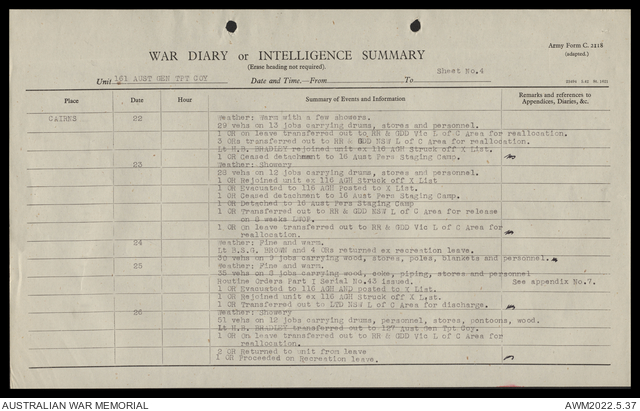 Army Form C. 2118
(adapted.)
WAR DIARY or INTELLIGENCE SUMMARY
(Erase heading not required).
Sheet No.4
Unit 161 AUST GEN TPT COY Date and Time.—From To
Place Date Hour Summary of Events and Information Remarks and references to Appendices, Diaries, &c.
CAIRNS 22 Weather: Warm with a few showers.
29 vehs on 13 jobs carrying drums, stores and personnel.
1 OR on leave transferred out to RR & GDD Vic L of C Area for reallocation.
3 ORs transferred out to RR & GDD NSW L of C Area for reallocation.
Lt H.B. BRADLEY rejoined unit ex 116 AGH Struck off X List.
1 OR Ceased detachment to 16 Aust Pers Staging Camp.
23 Weather: Showery
22 vehs on 12 jobs carrying drums, stores and personnel.
1 OR Rejoined unit ex 116 AGH Struck off X List
1 OR Evacuated to 116 AGH Posted to X List.
1 OR Ceased detachment to 16 Aust Pers Staging Camp.
1 OR Detached to 16 Aust Pers Staging Camp
1 OR Transferred out to RR & GDD NSW L of C Area for release
on 2 weeks LWOP.
1 OR on leave transferred out to RR & GDD Vic L of C Area for
reallocation.
24 Weather: Fine and warm.
Lt B.S.G. BROWN and 4 ORs returned ex recreation leave.
30 vehs on 9 jobs carrying wood, stores, poles, blankets and personnel.
25 Weather: Fine and warm.
35 vehs on 8 jobs carrying wood, coke, piping, stores and personnel
Routine Orders Part I Serial No.43 issued. See appendix No.7.
1 OR Evacuated to 116 AGH AND posted to X List.
1 OR Rejoined unit ex 116 AGH Struck off X List.
1 OR Transferred out to LTD NSW L of C Area for discharge.
26 Weather: Showery
51 vehs on 12 jobs carrying drums, personnel, stores, pontoons, wood.
Lt H.B. BRADLEY transferred out to 127 Aust Gen Tpt Coy.
1 OR on leave transferred out to RR & GDD Vic L of C Area for
reallocation.
2 OR Returned to unit from leave
1 OR Proceeded on Recreation leave.
AUSTRALIAN WAR MEMORIAL AWM2022.5.37